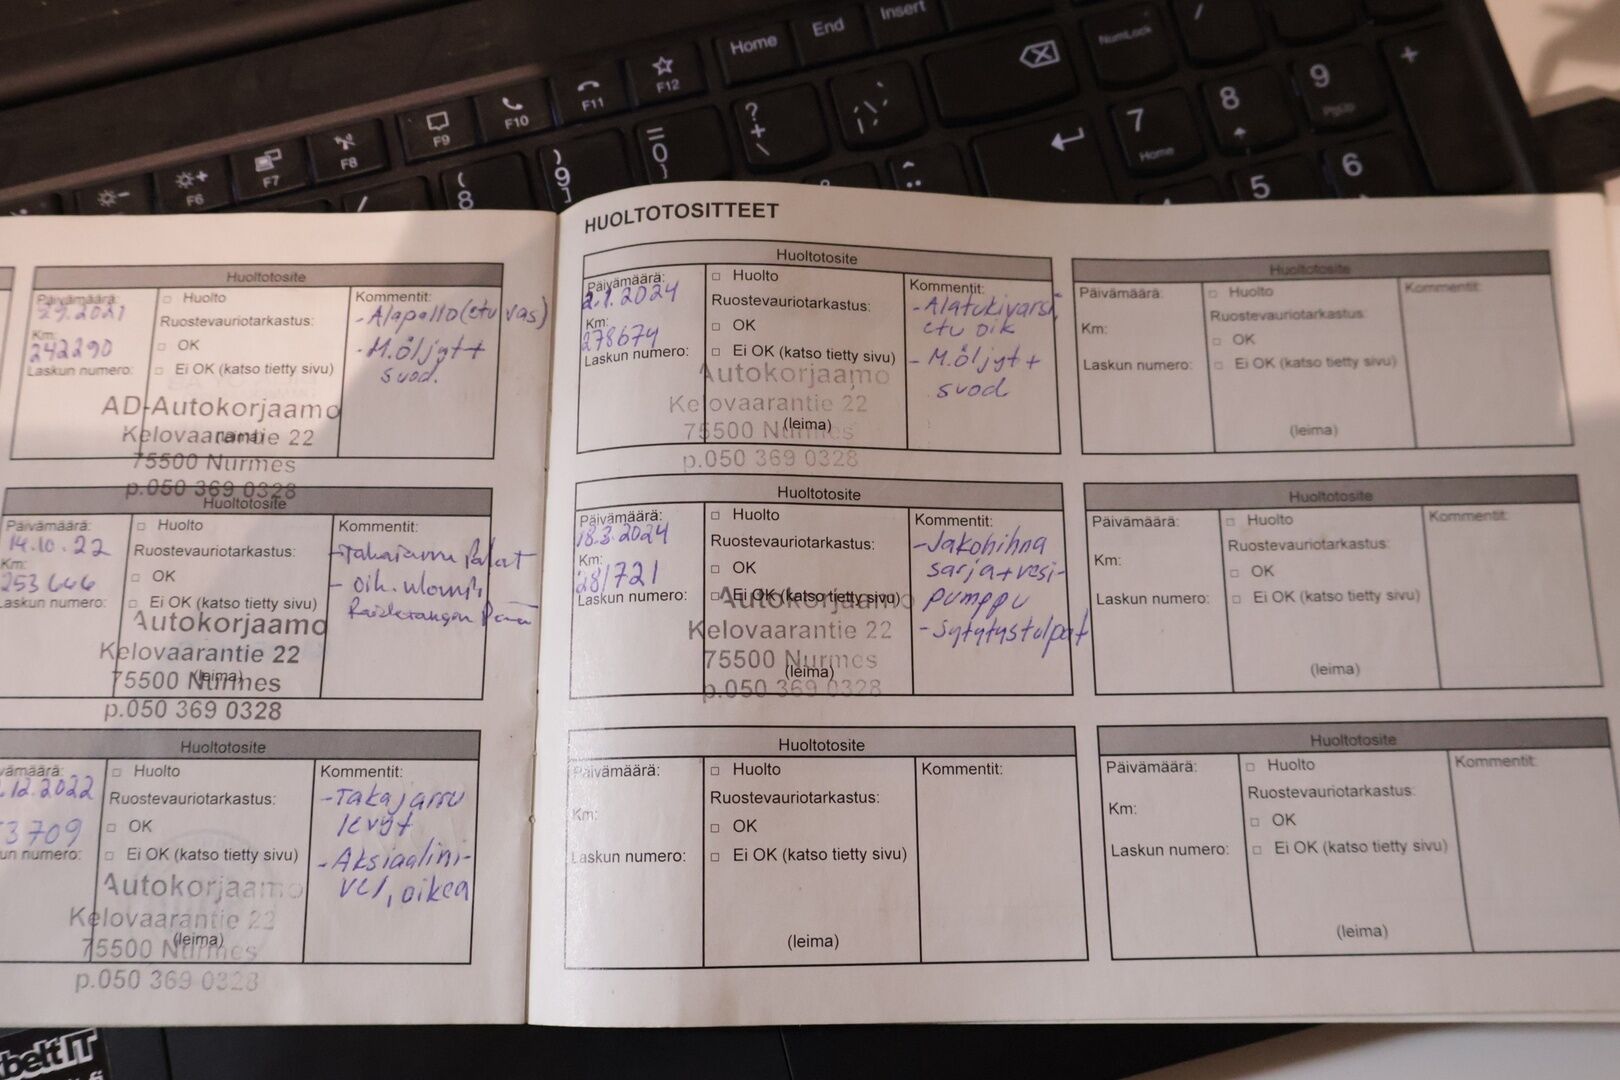 Home
End
Insert
F6
F7
F8
F9
F10
F11
F12
NumLock
7
Home
8
9
PgUp
5
6
+
?
+
\
=
0
}
)
9
]
(
8
[
/
HUOLTOTOSITTEET
Huoltotosite
Päivämäärä:
2021
Km:
242290
Laskun numero:
□ Huolto
Ruostevauriotarkastus:
□ OK
□ Ei OK (katso tietty sivu)
(leima)
Kommentit:
-Alapallo (etu vas)
-M.öljyt +
suod.
AD-Autokorjaamo
Kelovaarantie 22
75500 Nurmes
p.050 369 0328
Huoltotosite
Päivämäärä:
14.10.22
Km:
253646
Laskun numero:
□ Huolto
Ruostevauriotarkastus:
□ OK
□ Ei OK (katso tietty sivu)
(leima)
Kommentit:
-Takajarru Palat
- oik. ulompi
Raidetangon Pää
Autokorjaamo
Kelovaarantie 22
75500 Nurmes
p.050 369 0328
Huoltotosite
vämäärä:
.12.2022
3709
un numero:
□ Huolto
Ruostevauriotarkastus:
□ OK
□ Ei OK (katso tietty sivu)
(leima)
Kommentit:
-Takajarru
levyt
-Aksiaalini-
vel, oikea
Autokorjaamo
Kelovaarantie 22
75500 Nurmes
p.050 369 0328
Huoltotosite
Päivämäärä:
2.1.2024
Km:
278674
Laskun numero:
□ Huolto
Ruostevauriotarkastus:
□ OK
□ Ei OK (katso tietty sivu)
(leima)
Kommentit:
-Alatukivarsi,
etu oik
- M.öljyt +
suod
Autokorjaamo
Kelovaarantie 22
75500 Nurmes
p.050 369 0328
Huoltotosite
Päivämäärä:
18.3.2024
Km:
281721
Laskun numero:
□ Huolto
Ruostevauriotarkastus:
□ OK
□ Ei OK (katso tietty sivu)
(leima)
Kommentit:
-Jakohihna
sarja+vesi-
pumppu
-Sytytystulpat
Autokorjaamo
Kelovaarantie 22
75500 Nurmes
p.050 369 0328
Huoltotosite
Päivämäärä:
Km:
Laskun numero:
□ Huolto
Ruostevauriotarkastus:
□ OK
□ Ei OK (katso tietty sivu)
(leima)
Kommentit:
Huoltotosite
Päivämäärä:
Km:
Laskun numero:
□ Huolto
Ruostevauriotarkastus:
□ OK
□ Ei OK (katso tietty sivu)
(leima)
Kommentit:
Huoltotosite
Päivämäärä:
Km:
Laskun numero:
□ Huolto
Ruostevauriotarkastus:
□ OK
□ Ei OK (katso tietty sivu)
(leima)
Kommentit:
Huoltotosite
Päivämäärä:
Km:
Laskun numero:
□ Huolto
Ruostevauriotarkastus:
□ OK
□ Ei OK (katso tietty sivu)
(leima)
Kommentit:
beltIT